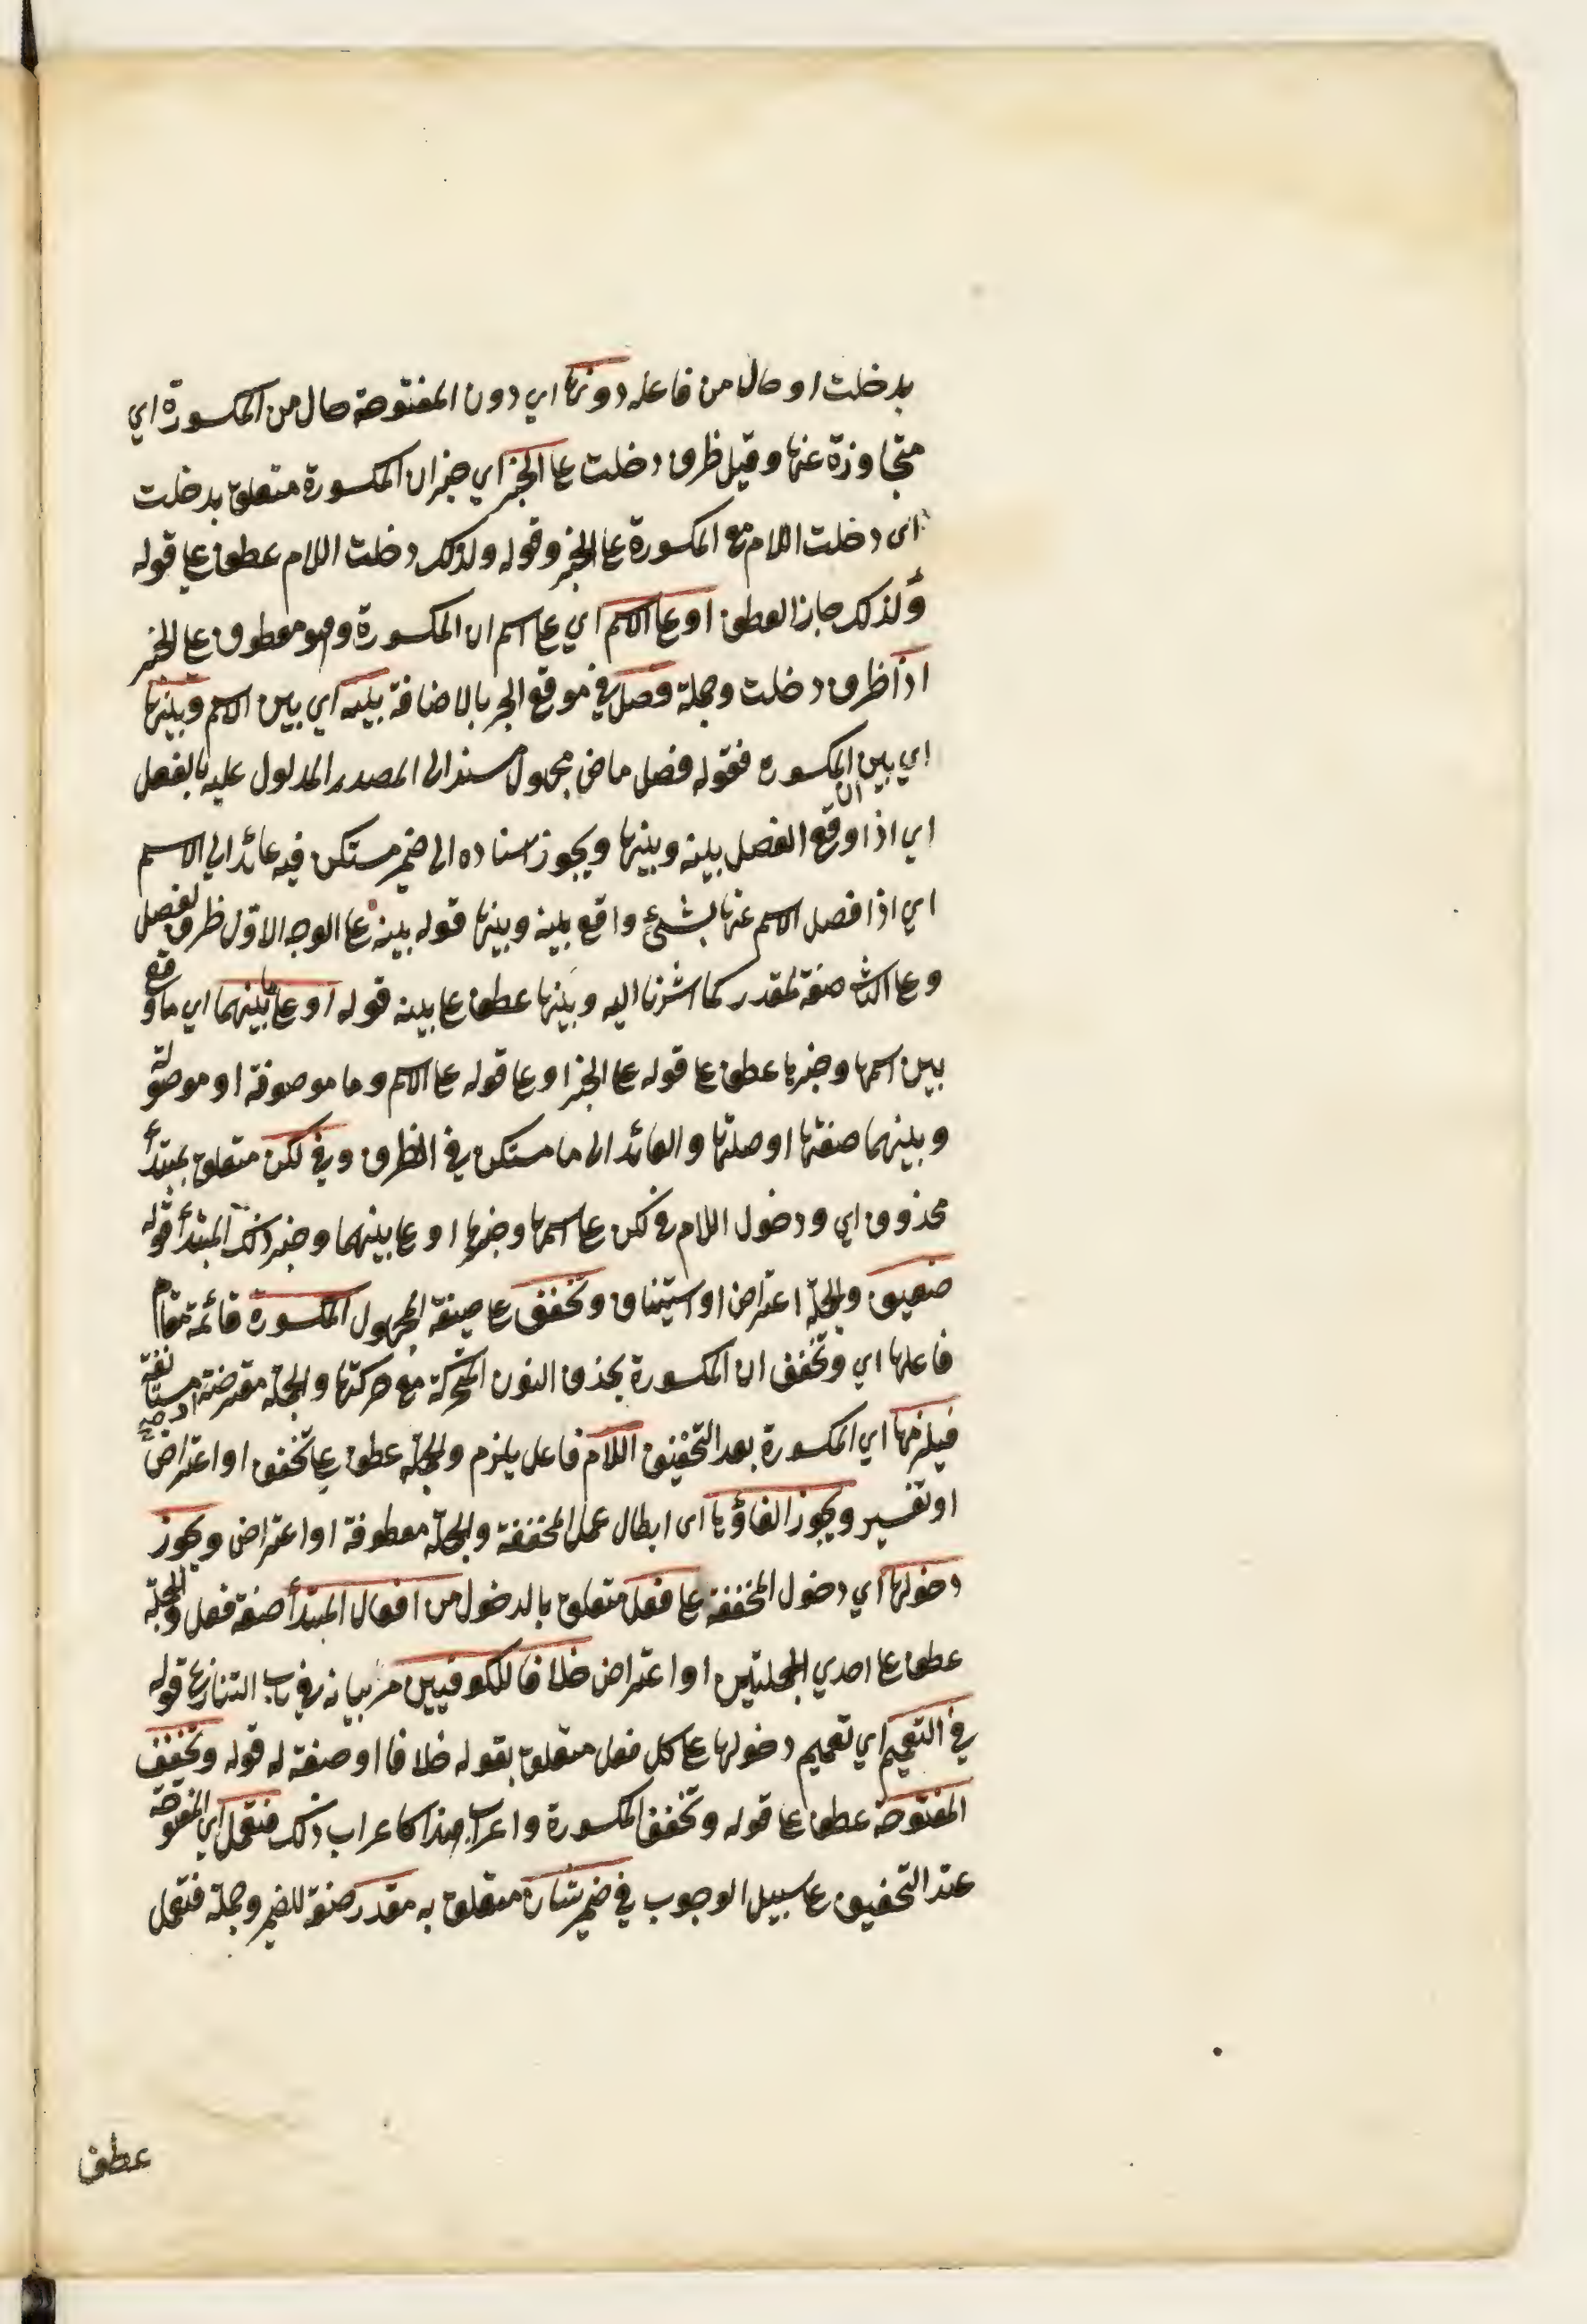 بدخلت او حال من فاعله دونها اي دون المفتوحة حال من المكسورة اي
متجاوزة عنها وقيل ظرف دخلت عل الخبر اي خبر ان المكسورة متعلق بدخلت
اى دخلت اللام مع المكسورة عل الخبر وقوله ولذلك دخلت اللام عطف عل قوله
ولذلك جاز العطف او عل الاسم اي عل اسم ان المكسورة وهو معطوف عل الخبر
اذا ظرف دخلت وجملة فصل في موقع الجر بالاضافة بينه اي بين الاسم وبينها
اي بين ان المكسورة فقوله فصل ماض مجهول مسند الى المصدر المدلول عليه بالفعل
اي اذا وقع الفصل بينه وبينها ويجوز اسناده الى ضمير مستكن فيه عائد الى الاسم
اي اذا فصل الاسم عنها بشئ واقع بينه وبينها قوله بينه عل الوجه الاول ظرف لفصل
وعل الثاني صفة لمقدر كما اشرنا اليه وبينها عطف عل بينه قوله او عل ما بينهما اي ما وقع
بين اسمها وخبرها عطف عل قوله عل الخبر او عل قوله عل الاسم وما موصوفة او موصولة
وبينهما صفتها او صلتها والعائد الى ما مستكن في الظرف وفي لكن متعلق بمبتدأ
محذوف اي ودخول اللام في لكن عل اسمها وخبرها او عل بينهما وخبر ذلك المبتدأ قوله
ضعيف والجملة اعتراض او استيناف وتخفف عل صيغة المجهول المكسورة قائمة مقام
فاعلها اي وتخفف ان المكسورة بحذف النون المتحركة مع حركتها والجملة معترضة او مستانفة
فيلزمها اي المكسورة بعد التخفيف اللام فاعل يلزم والجملة عطف عل تخفف او اعتراض
او تفسير ويجوز الغاؤها اى ابطال عمل المخففة والجملة معطوفة او اعتراض ويجوز
دخولها اي دخول المخففة عل فعل متعلق بالدخول من افعال المبتدأ صفة فعل والجملة
عطف عل احدي الجملتين او اعتراض خلافا للكوفيين مر بيانه في باب التنازع قوله
في التعميم اي تعميم دخولها عل كل فعل متعلق بقوله خلافا او صفة له قوله وتخفف
المفتوحة عطف عل قوله وتخفف المكسورة واعراب هذا كاعراب ذلك فتعمل اي المفتوحة
عند التخفيف عل سبيل الوجوب في ضمير شان متعلق به مقدر صفة للضمير وجملة فتعمل
عطف